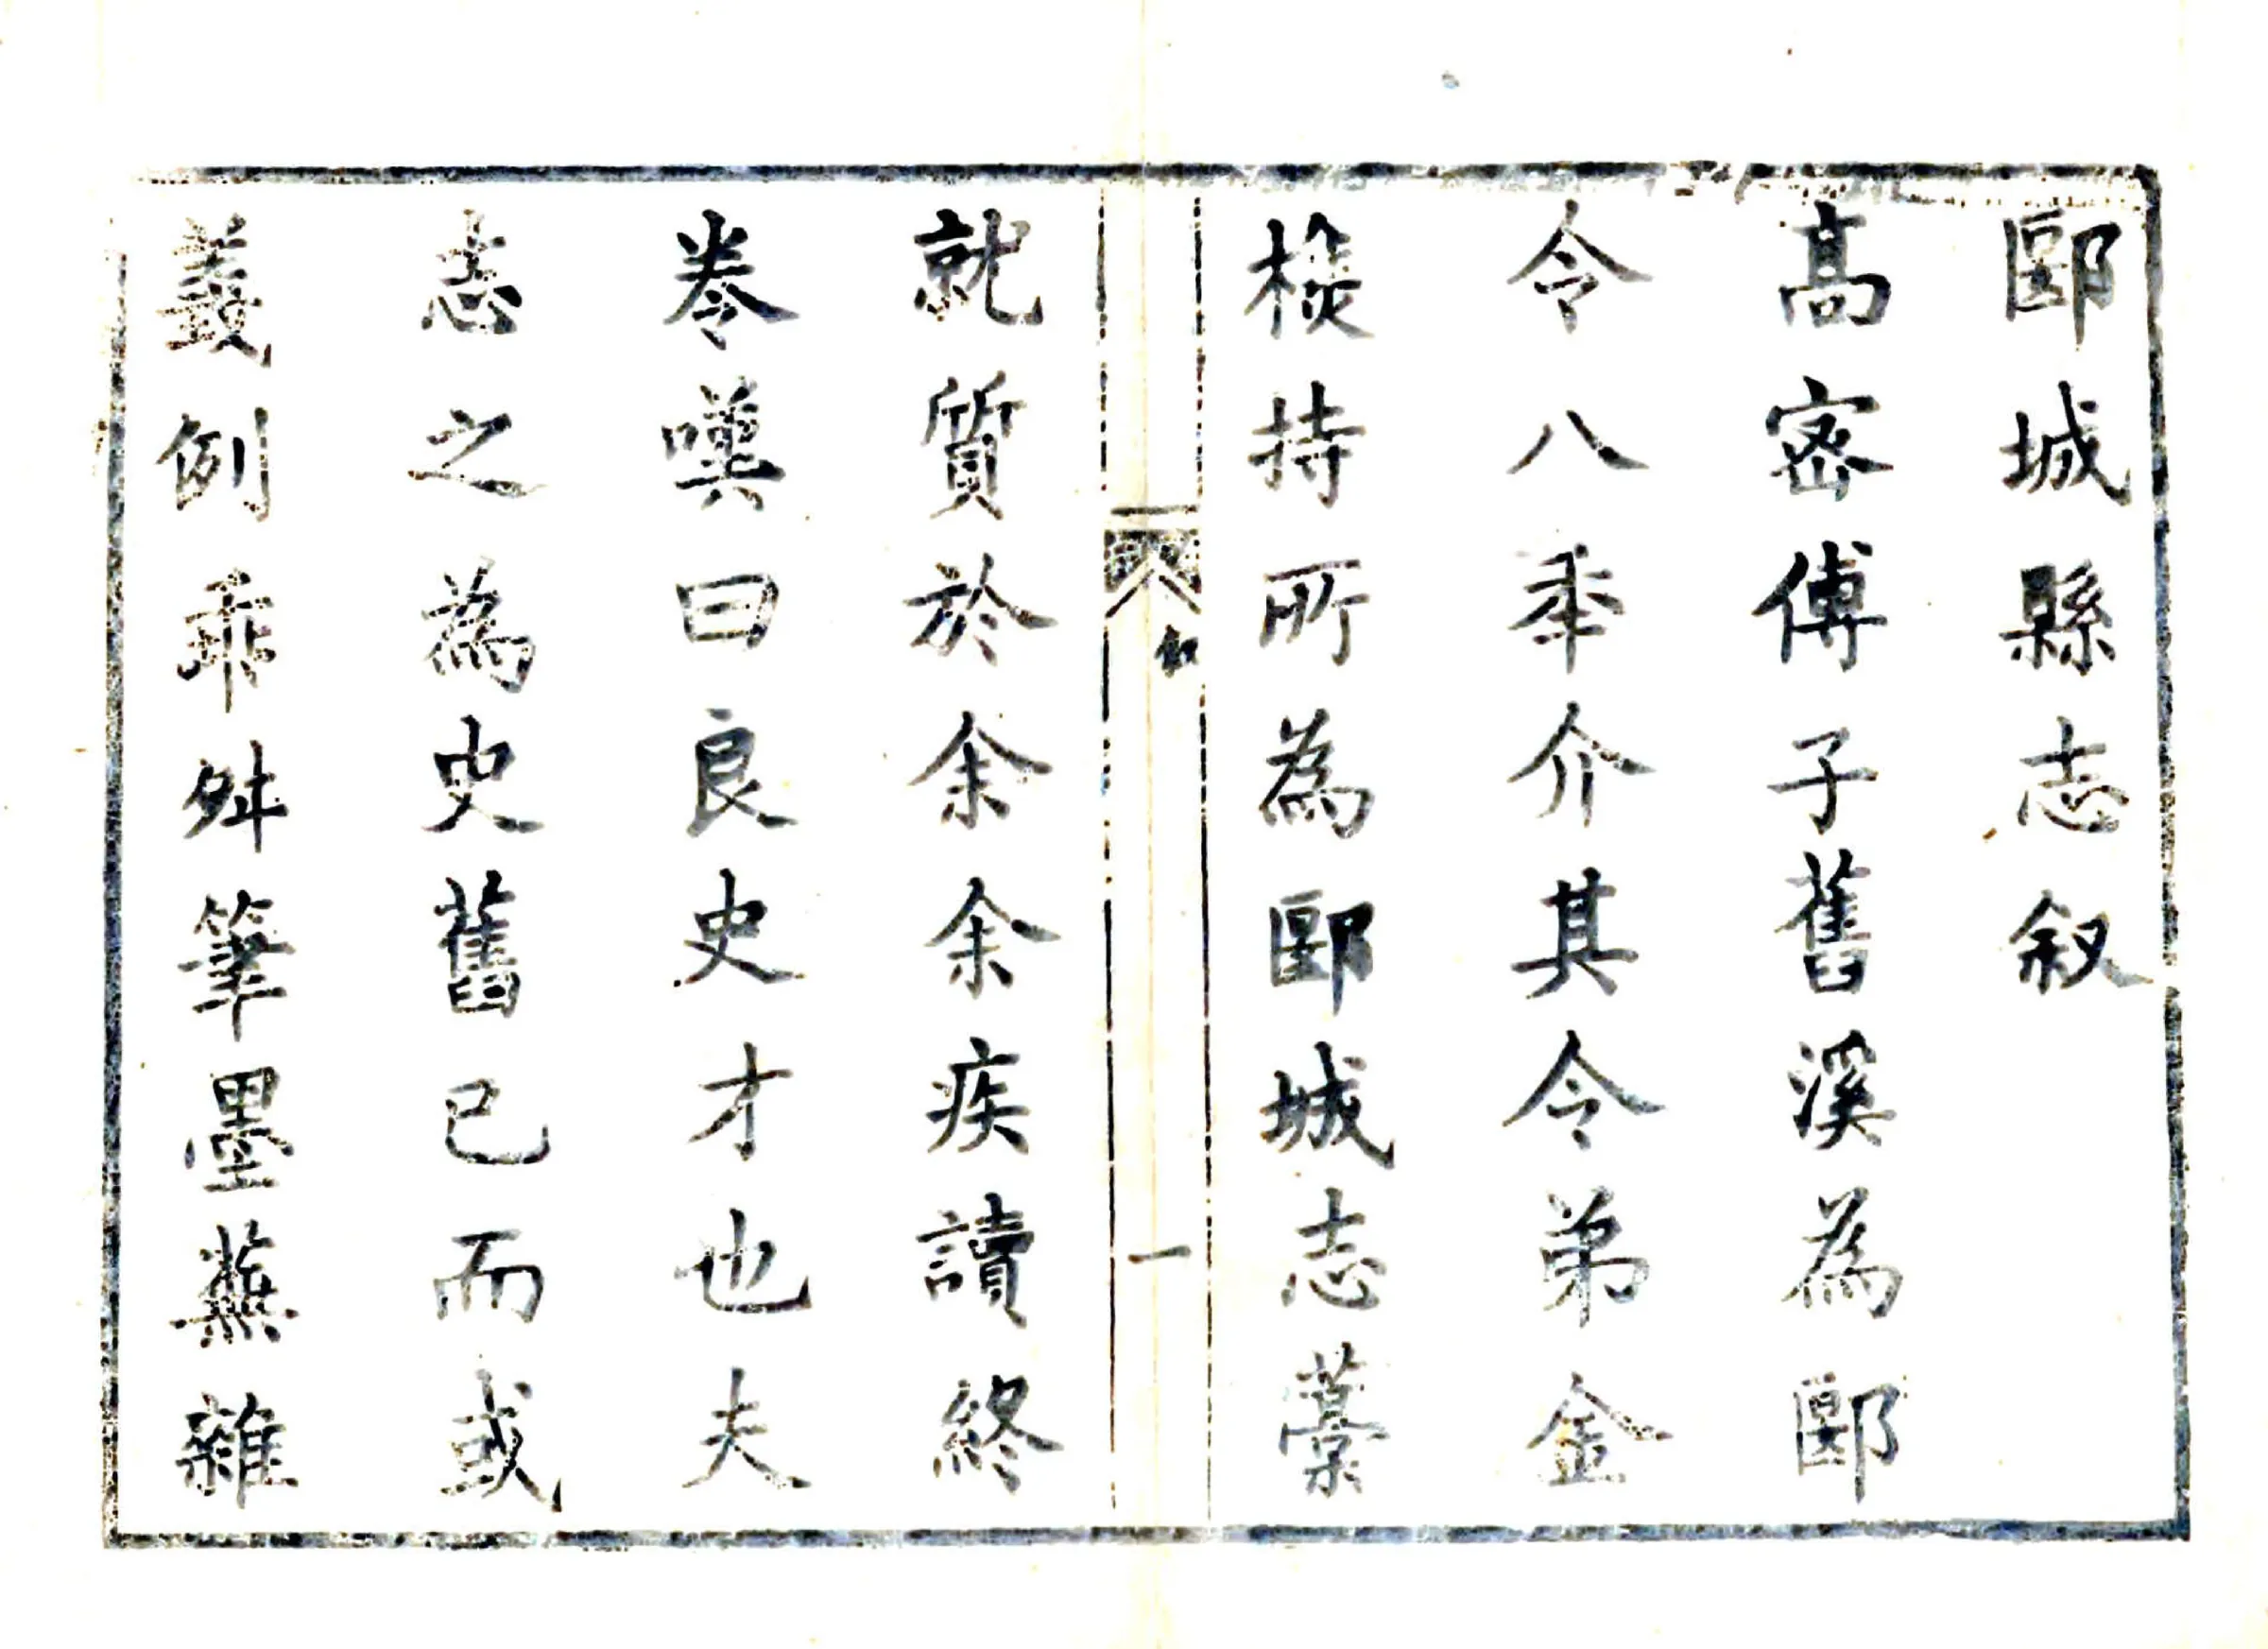 郾城縣志叙
高宻傅子舊溪為郾
令八年介其令弟金
樵持所為郾城志藁
就質於余余疾讀終
卷嘆曰良史才也夫
志之為史舊已而或
義例乖舛筆墨蕪雜
叙
一